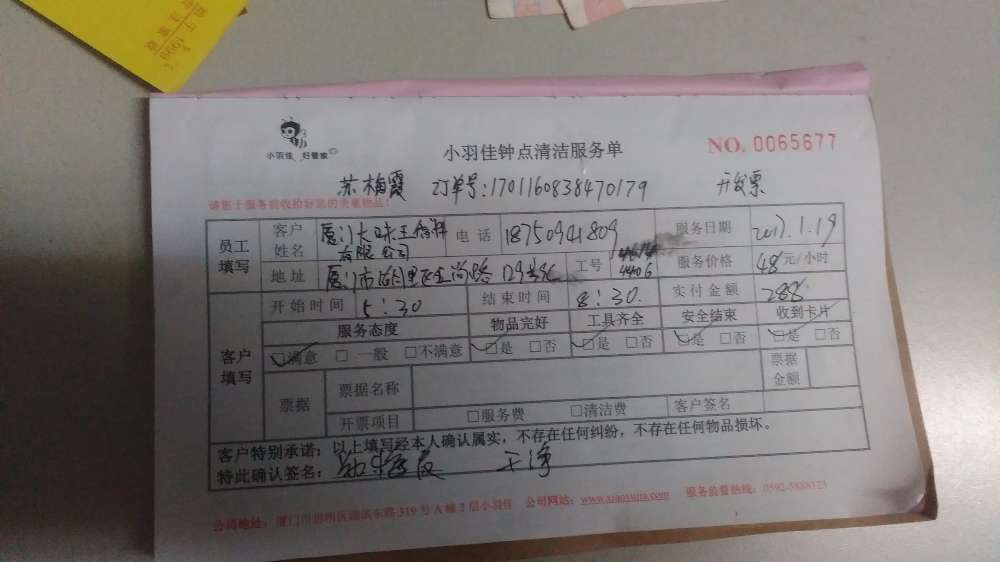 1999
小羽佳 好管家
小羽佳钟点清洁服务单
NO. 0065677
苏梅霞 订单号:1701160838470179 开发票
请您于服务前收拾好您的贵重物品!
员工填写
客户姓名 厦门大味王 有限公司 电话 18750941809 服务日期 2017.1.19
地址 厦门市 129号 工号 4406 服务价格 48元/小时
客户填写
开始时间 5:30 结束时间 8:30. 实付金额 288
服务态度 物品完好 工具齐全 安全结束 收到卡片
☑满意 □一般 □不满意 ☑是 □否 ☑是 □否 ☑是 □否 ☑是 □否
票据 票据名称 票据金额
开票项目 □服务费 □清洁费 客户签名
客户特别承诺:以上填写经本人确认属实,不存在任何纠纷,不存在任何物品损坏。
特此确认签名:
公司地址:厦门市思明区湖滨东路319号A幢2层小羽佳 公司网站:www.xiaoyujia.com 服务监督热线:0592-5888123